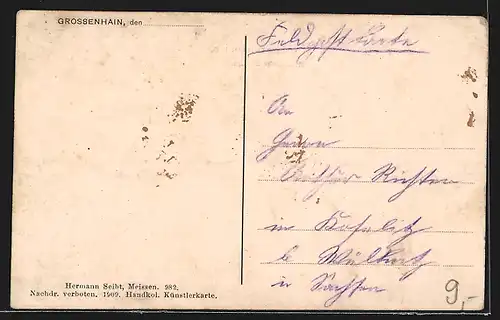 GROSSENHAIN, den
Feldpostkarte
An
Herrn
Arthur Richter
in Koselitz
b Wülknitz
in Sachsen
9,-
Hermann Seibt, Meissen. 982.
Nachdr. verboten. 1909. Handkol. Künstlerkarte.